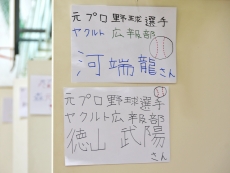 元プロ野球選手
ヤクルト広報部
河端龍さん
元プロ野球選手
ヤクルト広報部
徳山 武陽
さん